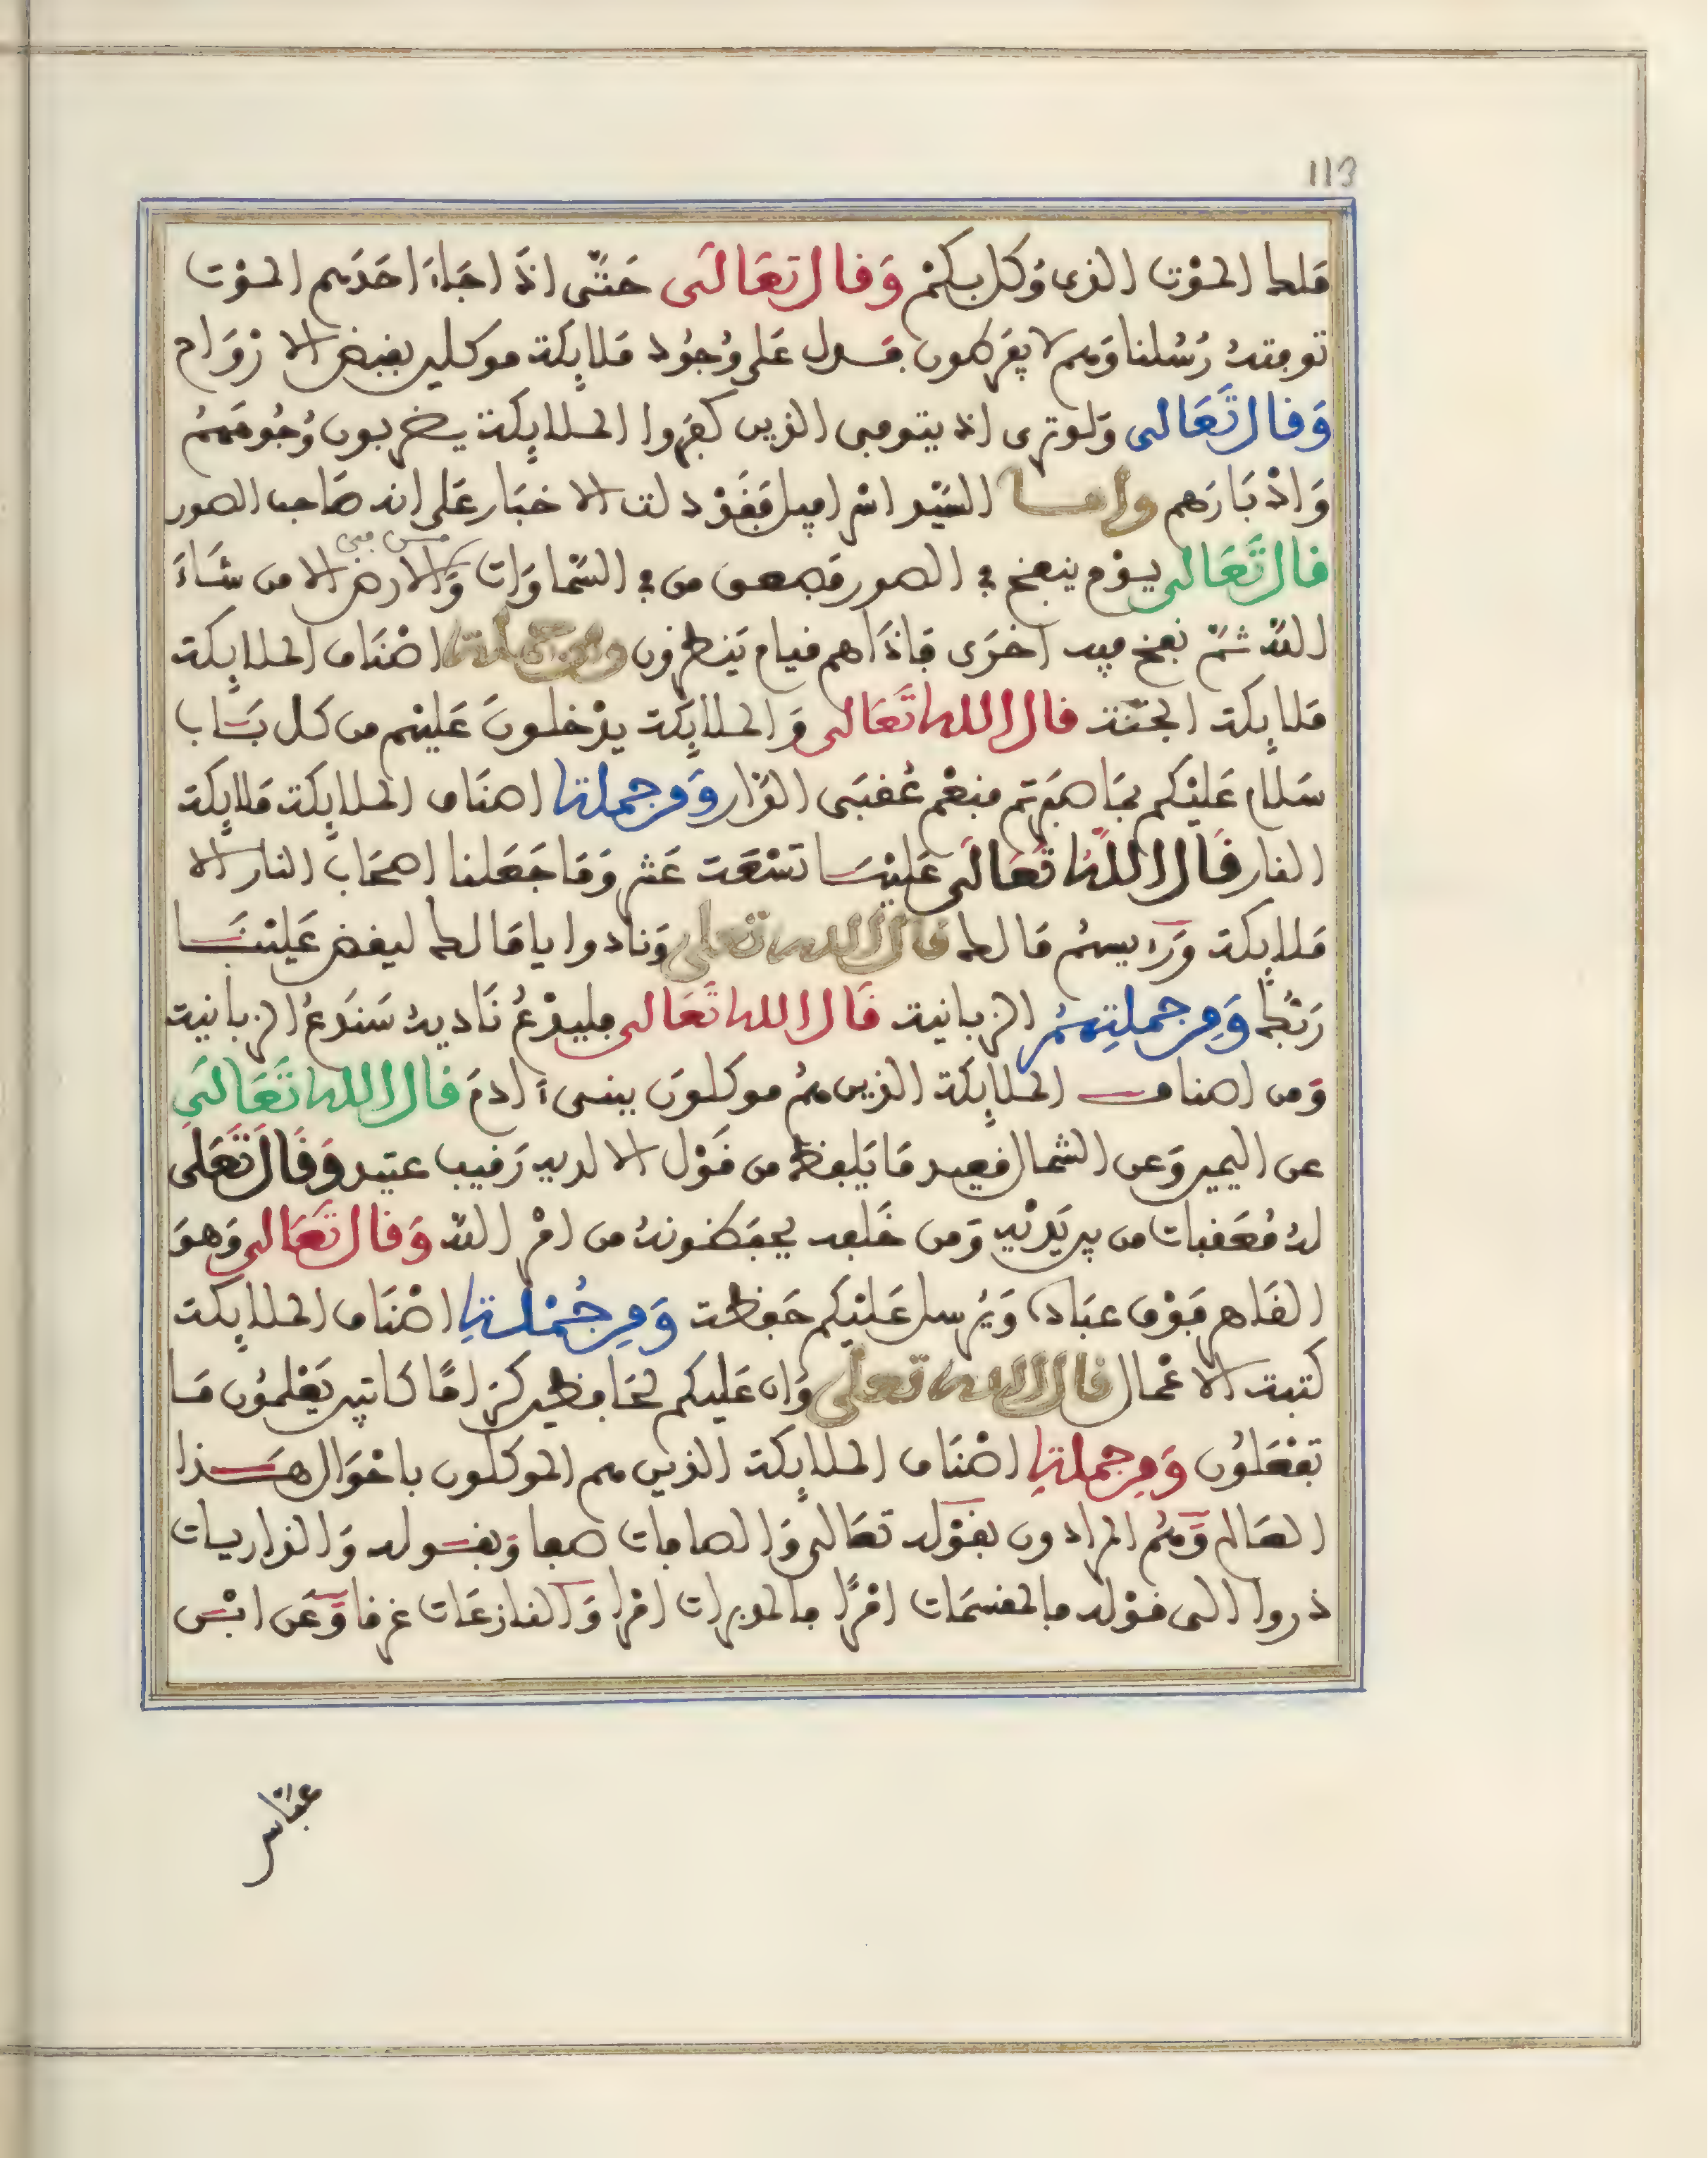 113
ملك الموت الذى وُكل بكمْ وَقال تعَالَى حَتَّى اذَا جَاءَ احَدَهم الموْت
توفته رُسُلنا وَهم لا يفرطون فدل عَلى وُجُود مَلايِكة موكلين بقبض الارْوَاح
وَقال تَعَالى وَلو ترى اذ يتوفى الذين كفروا الملايِكة يضربون وُجُوهَهمُ
وَادْبَارَهم واما السَيْد اسْرافيل فقَدْ دلت الاخبَار عَلى انه صَاحب الصور
قال تَعَالى يوْم ينفخ في الصور فصعق من في السّماوَات وَمن في الارض الا من شَاءَ
اللهُ ثمّ نفخ فيه اخرَى فاذَا هم قيام يَنظرون ومن جملة اصْنَاف الملايِكة
مَلايِكة الجنّة قال الله تَعَالى وَالملايِكة يدْخلونَ عَليْهم من كل بَاب
سَلام عَليْكم بمَا صَبرتم فنعْم عُقبَى الدَار وَمن جملة اصنَاف الملايِكة مَلايِكة
النار قَال اللهُ تَعَالَى عَليْهَا تسْعَة عَشر وَمَا جَعَلنا اصحَاب النار الا
مَلايِكة وَرَءيسهمُ مَالك قال الله تعلى وَنادوا يا مَالك ليقض عَليْنَا
رَبُّك وَمِن جملتِهمُ الزبانية قَال الله تَعَالى فليدْعُ نَاديهُ سَندَعُ الزبانية
وَمن اصناف الملايِكة الذين همُ موكلونَ ببنى ءادمَ قال الله تَعَالَى
عن اليمين وَعن الشمال قعيد مَا يَلفظ من قَوْل الا لديه رَقيب عتيد وَقَالَ تَعَلى
لهُ مُعَقبات من بين يَديْه وَمن خَلفه يحفظونهُ من امْر اللهَ وَقال تَعَالى وَهوَ
القاهر فوْق عبَاده وَيرْسل عَليْكم حَفظة وَمِن جُمْلةِ اصْنَاف الملايِكة
كتبة الاعْمَال قال الله تعلى وَان عَليكم لحَافظين كرَامًا كاتبين يَعْلمُون مَا
تفْعَلوُن وَمِن جملةِ اصْنَاف الملايِكة الذين هم الموكلون باحْوَال هَذا
العَالم وَهمُ المرادون بقوْله تعَالى وَالصافات صفا وَبقوله وَالذاريات
ذروا الى قوْله فالمقسمَات امْرًا فالمدبرات امْرا وَالنازعَات غرقا وَعَن ابْن
عبّاس